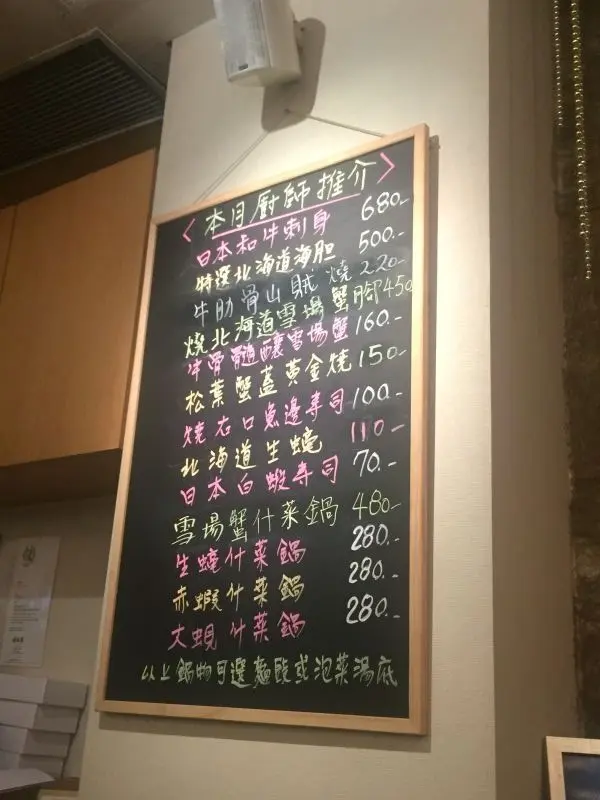 <本月厨師推介>
日本和牛刺身 680.-
特選北海道海胆 500.-
牛肋骨山賊燒 220.-
燒北海道雪場蟹腳 450
牛骨髓釀雪場蟹 160.-
松葉蟹蓋黃金燒 150.-
燒左口魚邊寿司 100.-
北海道生蠔 110.-
日本白蝦寿司 70.-
雪場蟹什菜鍋 480.-
生蠔什菜鍋 280.-
赤蝦什菜鍋 280.-
大蜆什菜鍋 280.-
以上鍋物可選麵豉或泡菜湯底